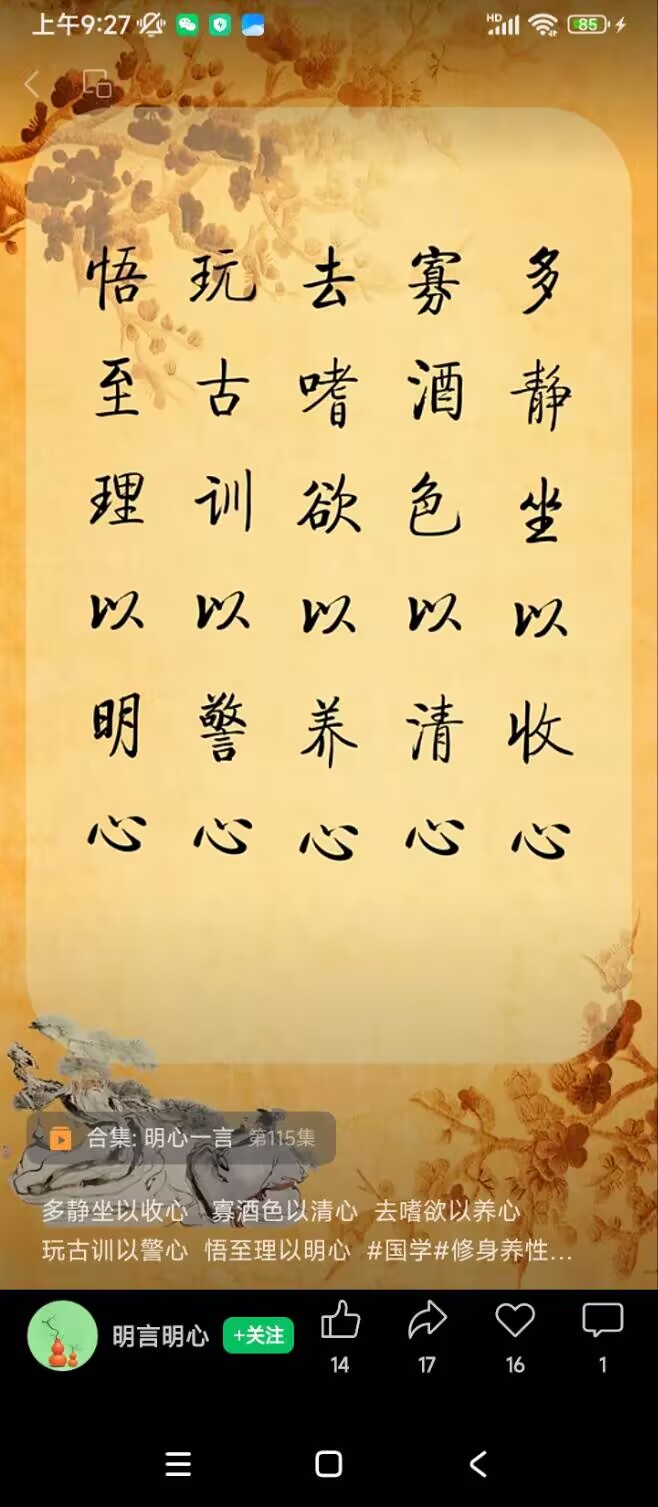 上午9:27
HD
85
多静坐以收心
寡酒色以清心
去嗜欲以养心
玩古训以警心
悟至理以明心
合集: 明心一言 第115集
多静坐以收心 寡酒色以清心 去嗜欲以养心
玩古训以警心 悟至理以明心 #国学#修身养性...
明言明心 +关注
14 17 16 1